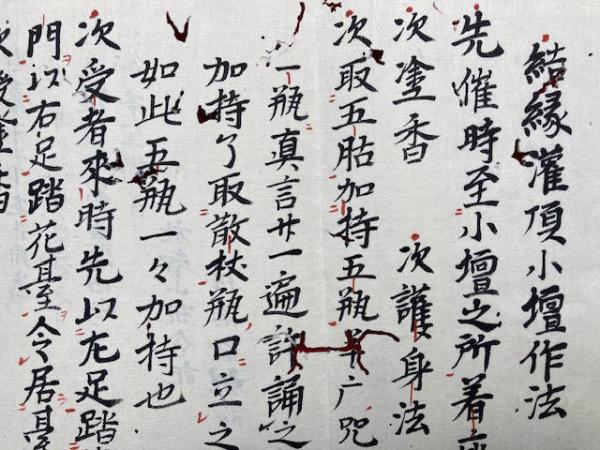 結縁灌頂小壇作法
先催時至小壇之所着
次塗香　次護身法
次取五股加持五瓶
一瓶真言廿一遍誦之
加持了取散杖瓶口立之
如此五瓶一々加持也
次受者來時先以左足踏
門以右足踏花臺今居臺
次受塗香